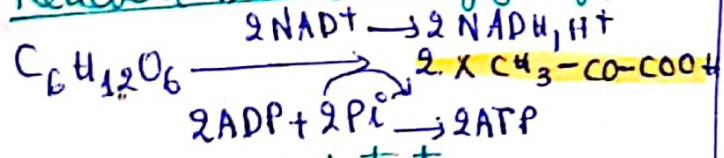 2NAD+ → 2 NADH,H+
C6H12O6 → 2 x CH3-CO-COOH
2ADP + 2Pi → 2ATP